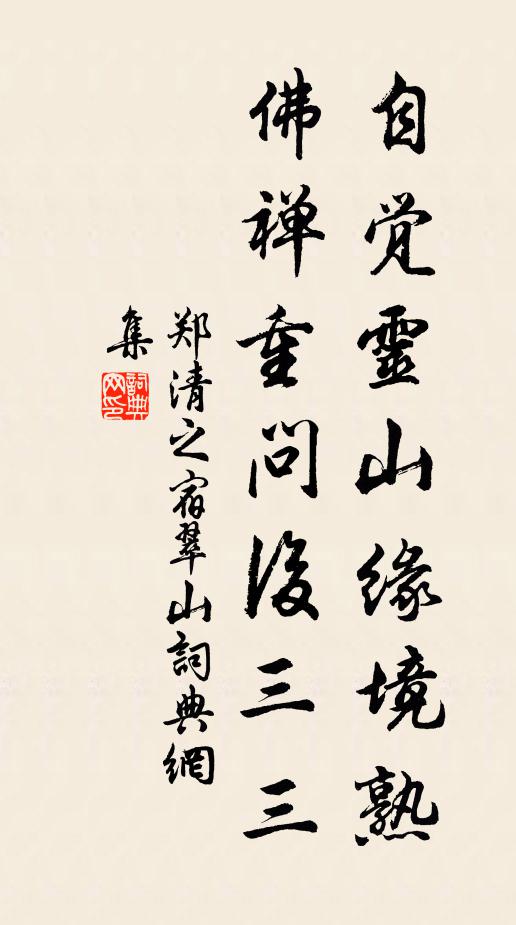 自觉靈山缘境熟
佛禅重问後三三
郑清之宿翠山詞典網
集
詞典
网印